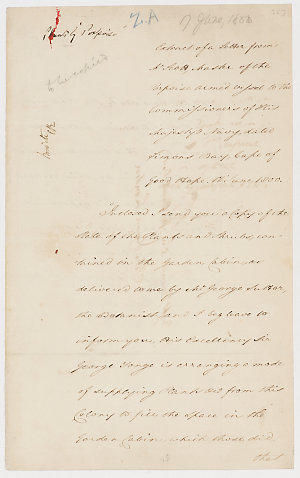 Z.A
7 June 1800
to be copied
Extract of a Letter from
Mr Scott, Master of the
Porpoise Armed Vessel to the
Commissioners of His
Majesty's Navy, dated
Simons Bay, Cape of
Good Hope, 7th June 1800.
Inclosed I send you a Copy of the
state of the Plants and Shrubs, con-
tained in the Garden Cabin, as
delivered to me by Mr George Suttor,
the Botanist, and I beg leave to
inform you, His Excellency Sir
George Yonge is arranging a mode
of supplying Plants &c from this
Colony to fill the space in the
Garden Cabin, which those died
that